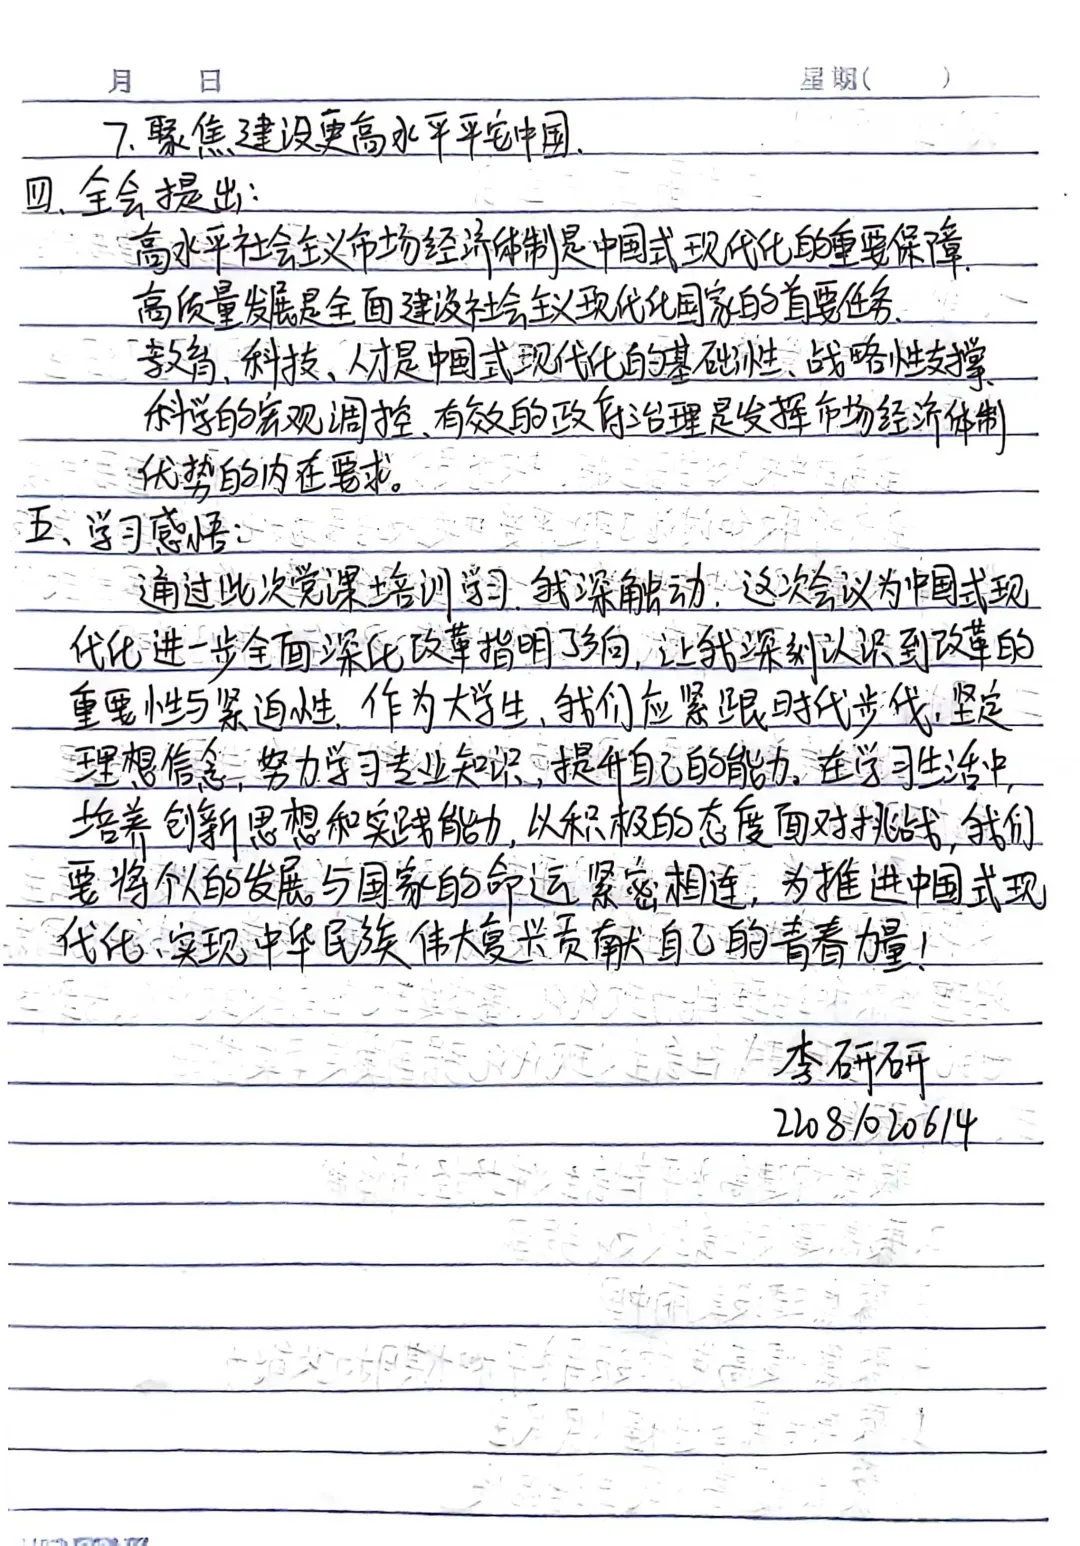 月 日 星期( )
7、聚焦建设更高水平平安中国、
四、全会提出：
高水平社会主义市场经济体制是中国式现代化的重要保障、
高质量发展是全面建设社会主义现代化国家的首要任务、
教育、科技、人才是中国式现代化的基础性、战略性支撑、
科学的宏观调控、有效的政府治理是发挥市场经济体制
优势的内在要求。
五、学习感悟：
通过此次党课培训学习，我深触动，这次会议为中国式现
代化进一步全面深化改革指明了方向，让我深刻认识到改革的
重要性与紧迫性，作为大学生、我们应紧跟时代步伐，坚定
理想信念，努力学习专业知识，提升自己的能力。在学习生活中，
培养创新思想和实践能力，以积极的态度面对挑战，我们
要将个人的发展与国家的命运紧密相连，为推进中国式现
代化、实现中华民族伟大复兴贡献自己的青春力量！
李研研
22081020614